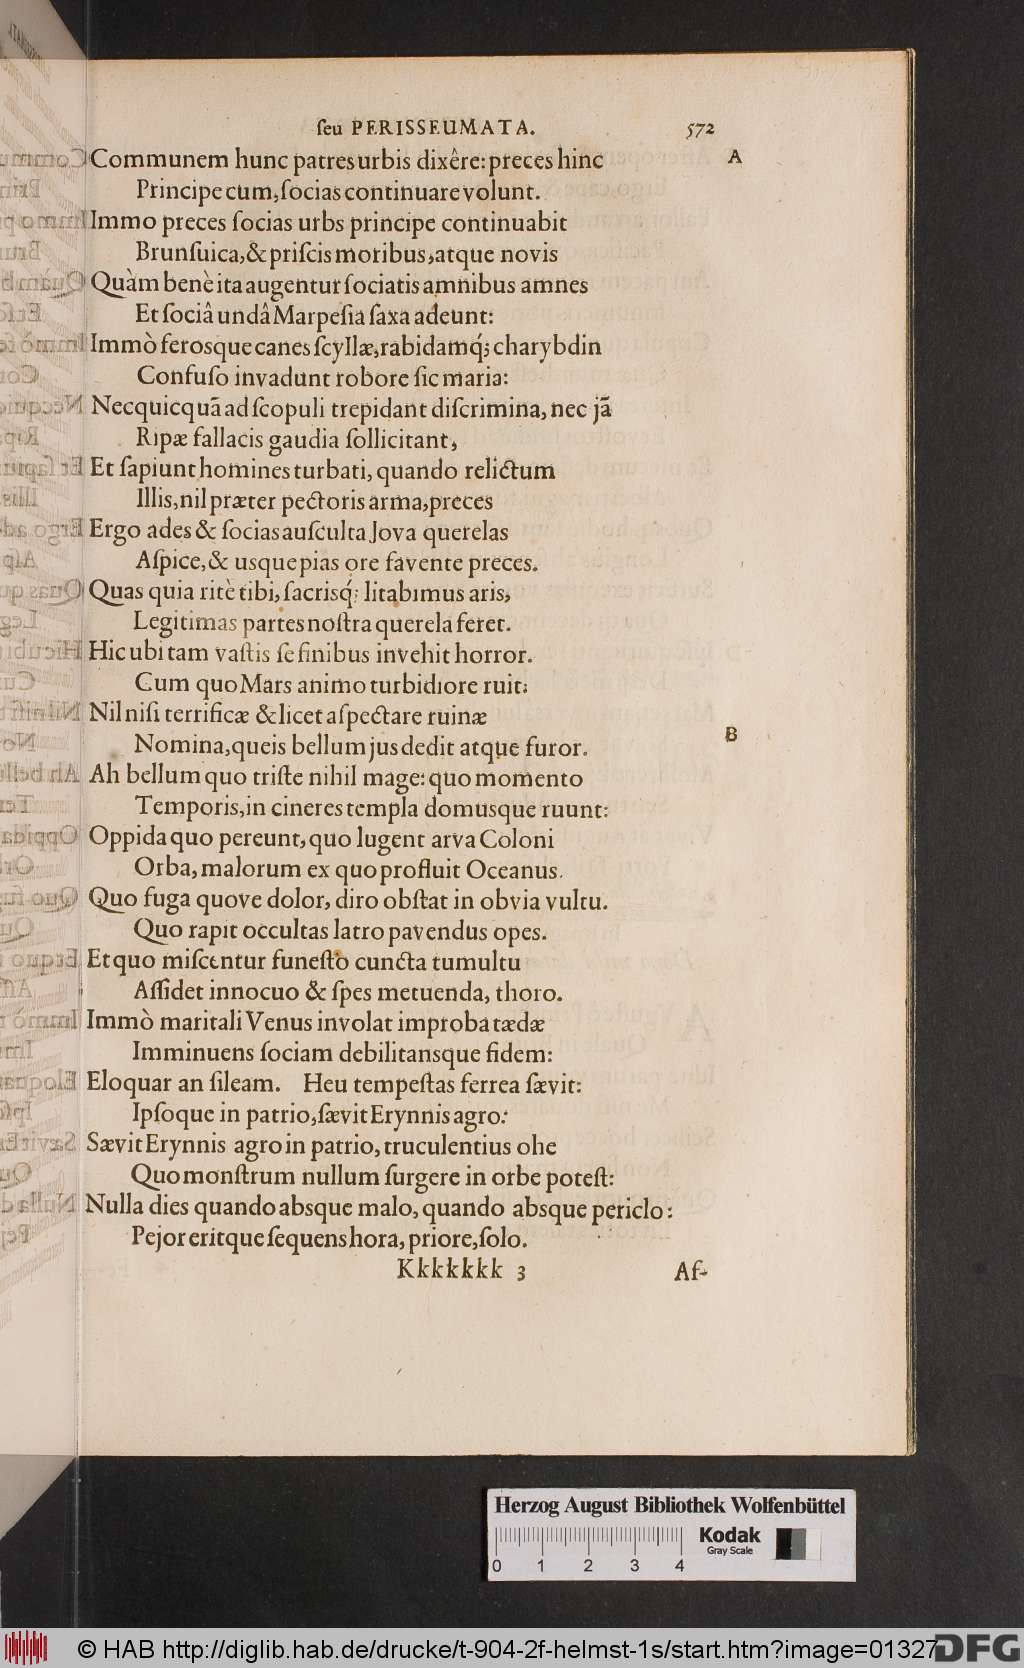 ſeu PERISSEUMATA. 572
Communem hunc patres urbis dixêre: preces hinc A
Principe cum, ſocias continuare volunt.
Immo preces ſocias urbs principe continuabit
Brunſuica, & priſcis moribus, atque novis
Quàm benè ita augentur ſociatis amnibus amnes
Et ſociâ undâ Marpeſia ſaxa adeunt:
Immò feroſque canes ſcyllæ, rabidamq́; charybdin
Confuſo invadunt robore ſic maria:
Necquicquā ad ſcopuli trepidant diſcrimina, nec jā
Ripæ fallacis gaudia ſollicitant,
Et ſapiunt homines turbati, quando relictum
Illis, nil præter pectoris arma, preces
Ergo ades & ſocias auſculta Jova querelas
Aſpice, & usque pias ore favente preces.
Quas quia ritè tibi, ſacrisq́; litabimus aris,
Legitimas partes noſtra querela feret.
Hic ubi tam vaſtis ſe finibus invehit horror.
Cum quo Mars animo turbidiore ruit:
Nil niſi terrificæ & licet aſpectare ruinæ
Nomina, queis bellum jus dedit atque furor.
B
Ah bellum quo triſte nihil mage: quo momento
Temporis, in cineres templa domusque ruunt:
Oppida quo pereunt, quo lugent arva Coloni
Orba, malorum ex quo profluit Oceanus.
Quo fuga quove dolor, diro obſtat in obvia vultu.
Quo rapit occultas latro pavendus opes.
Et quo miſcentur funeſto cuncta tumultu
Aſſidet innocuo & ſpes metuenda, thoro.
Immò maritali Venus involat improba tædæ
Imminuens ſociam debilitansque fidem:
Eloquar an ſileam. Heu tempeſtas ferrea ſævit:
Ipſoque in patrio, ſævit Erynnis agro:
Sævit Erynnis agro in patrio, truculentius ohe
Quo monſtrum nullum ſurgere in orbe poteſt:
Nulla dies quando absque malo, quando absque periclo:
Pejor eritque ſequens hora, priore, ſolo.
Kkkkkkk 3 Aſ-
Herzog August Bibliothek Wolfenbüttel
Kodak
Gray Scale
0 1 2 3 4
© HAB http://diglib.hab.de/drucke/t-904-2f-helmst-1s/start.htm?image=01327
DFG